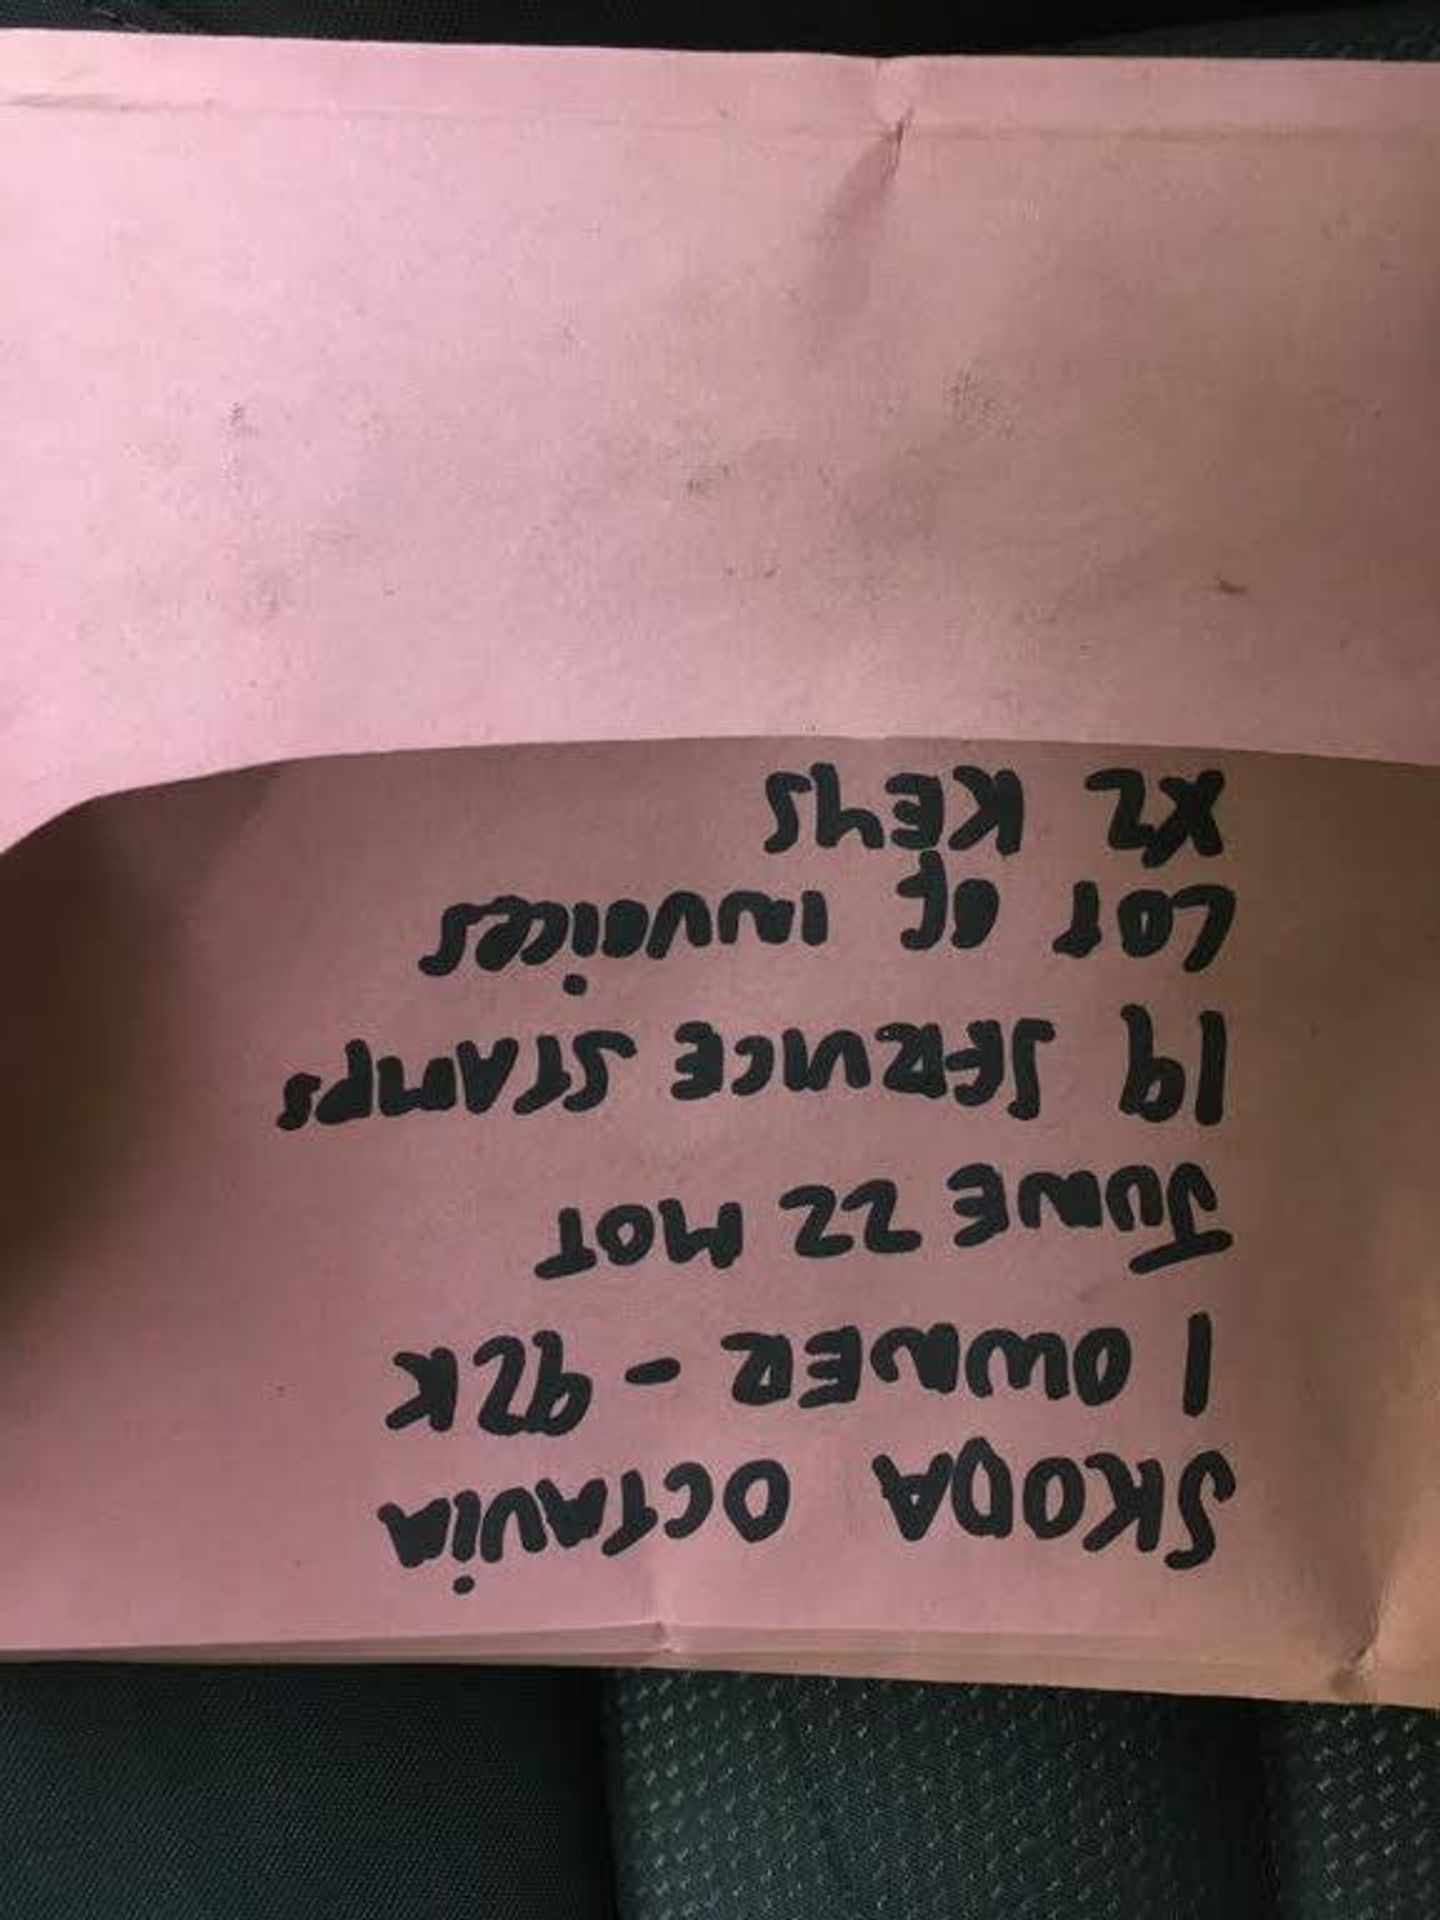 SKODA OCTAViA
1 OWNER - 92K
JUNE 22 MOT
19 SERVICE STAMPS
LOT OF INVOiCES
X2 KEYS